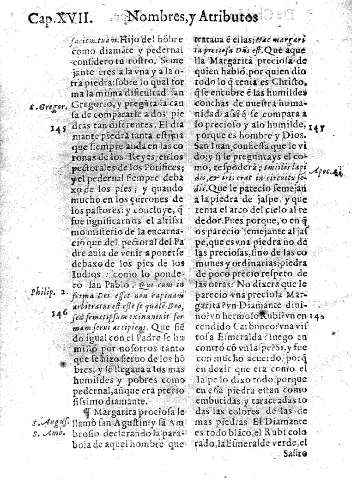 Cap.XVII. Nombres, y Atributos
faciem tuam. Hijo del hõbre
como diamãte y pedernal
considero tu rostro. Se me
jante tres a la vna y a la o
tra piedra: sobre lo qual for
ma la misma dificultad san
S. Gregor.
Gregorio, y pregũta la cau
sa de compararle a dos pie
145
dras tan diferentes. El dia
mante piedra tanta estima
que siempre anda en las co
ronas de los Reyes, en los
pectorales de los Põtifices;
y el pedernal siempre deba
xo de los pies; y quando
mucho en los çurrones de
los pastores: y concluye, q̃
fue significarnos el altissi
mo misterio de la encarna
cion que del pectoral del Pa
dre auia de venir a ponerse
debaxo de los pies de los
Iudios: como lo ponde
ro san Pablo. Qui cum in
Philip. 2.
forma Dei esset non rapinam
arbitratus est esse se qualẽ Deo,
146
sed semetipsum exinaniuit for
mam serui accipiens. Que siẽ
do igual con el Padre se hu
millo por nosotros tanto
que se hizo sieruo de los hõ
bres, y se llegaua a los mas
humildes y pobres como
pedernal, aũque era precio
sissimo diamante.
¶ Margarita preciosa le
S. August.
llamò san Agustin y sã Am
S. Amb.
brosio declarando la para
bola de aquel hombre que
trataua ẽ ellas; Hæc margari
ta preciosa Deus est. Que aque
lla Margarita preciosa de
quien habló, por quien dio
todo lo q̃ tenia es Christo,
q̃ se encubre ẽ las humildes
conchas de nuestra humani
dad: assi q̃ se compara a
lo precioso y alo humilde,
147
porque es hombre y Dios.
San Iuan confiessa que le vi
do; y si le preguntays el co
mo, respõderà; similis lapi
Apoc. 4.
di, & iris erat in circuitu se
dis. Que le parecio semejante
a la piedra de jaspe, y que
tenia el arco del cielo al re
dedor. Pues porque, o en q̃
os parecio semejante al jas
pe, que es vna piedra no de
las preciosas, sino de las co
munes y ordinarias; piedra
de poco precio respeto de
las otras? No dixera que le
parecio vna preciosa Mar
garita? vn Diamante diui
no? vn hermoso Rubi? vn en
148
cendido Carbunco? vna vis
tosa Esmeralda? luego en
contrò cõ vn la peña; y fue
con mucho acuerdo, porq̃
en dezir que era como el
jaspe lo dixo todo, porque
en essa piedra estan como
embutidas, y taraceadas to
das las colores de las de
mas piedras. El Diamante
es todo blãco, el Rubi colo
rado, la Esmeralde verde, el
Safiro